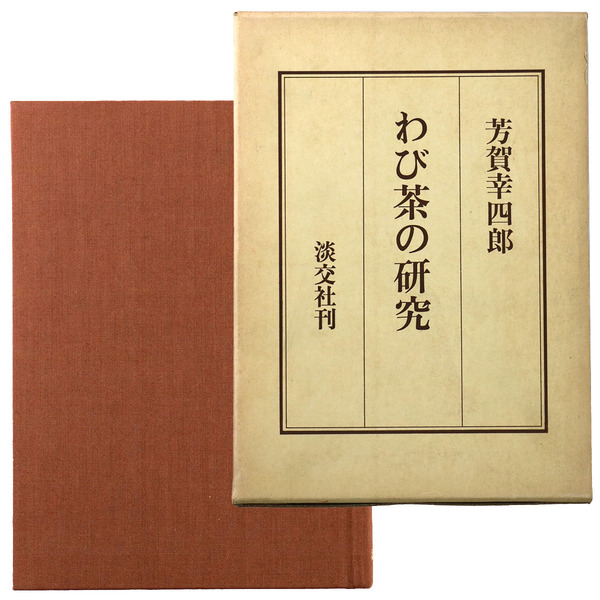 芳賀幸四郎
わび茶の研究
淡交社刊